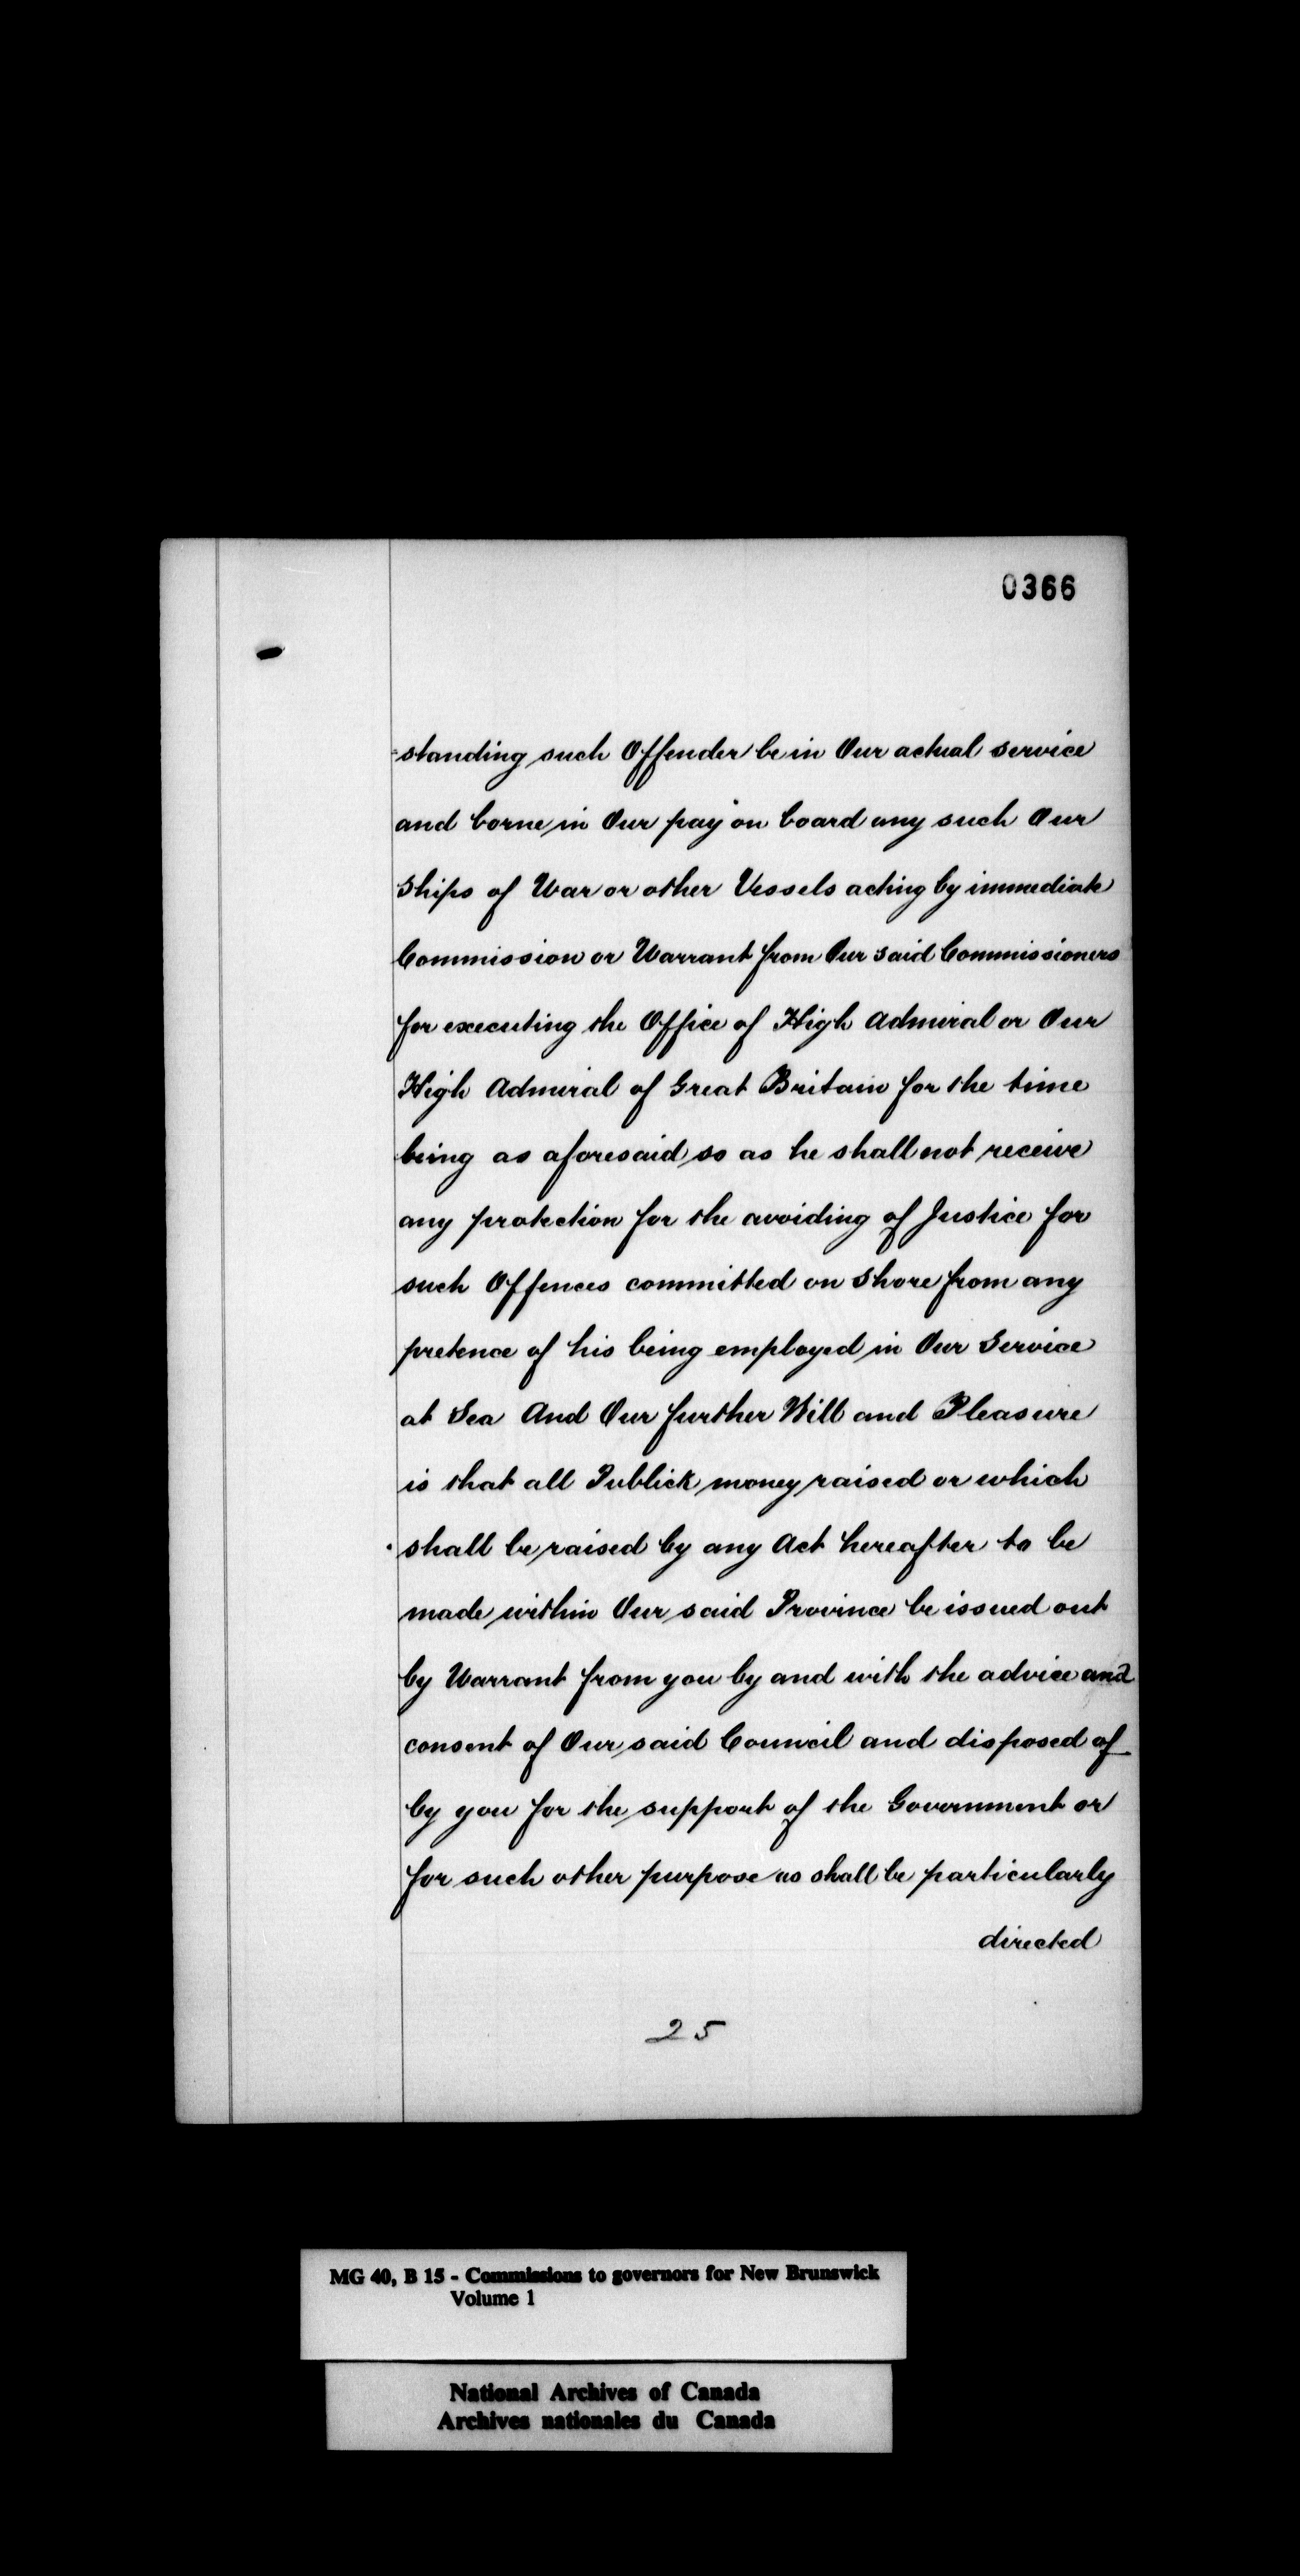 0366
-standing such Offender be in Our actual service
and borne in Our pay on board any such Our
Ships of War or other Vessels acting by immediate
Commission or Warrant from Our said Commissioners
for executing the Office of High Admiral or Our
High Admiral of Great Britain for the time
being as aforesaid so as he shall not receive
any protection for the avoiding of Justice for
such Offences committed on Shore from any
pretence of his being employed in Our Service
at Sea And Our further Will and Pleasure
is that all Publick money raised or which
shall be raised by any Act hereafter to be
made within Our said Province be issued out
by Warrant from you by and with the advice and
consent of Our said Council and disposed of
by you for the support of the Government or
for such other purpose as shall be particularly
directed
25
MG 40, B 15 - Commissions to governors for New Brunswick
Volume 1
National Archives of Canada
Archives nationales du Canada